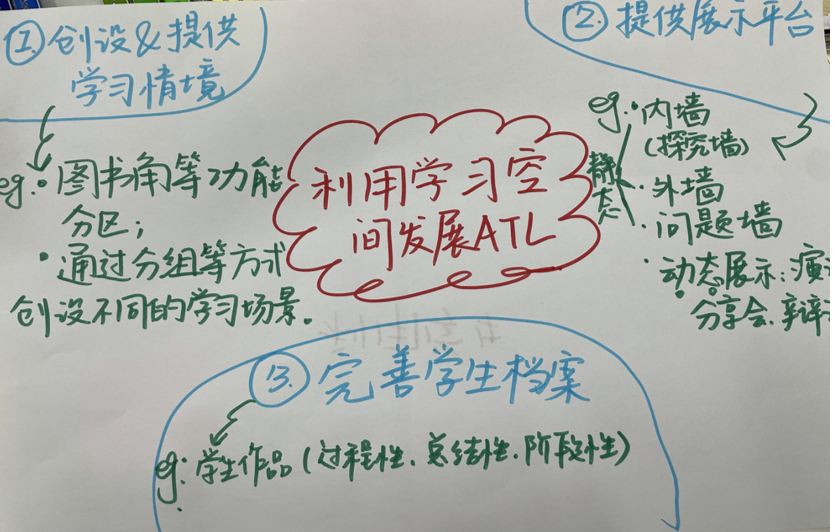 ① 创设&提供
学习情境
eg: · 图书角等功能
分区；
· 通过分组等方式
创设不同的学习场景。
利用学习空
间发展ATL
② 提供展示平台
eg: 静态
· 内墙
（探究墙）
· 外墙
· 问题墙
· 动态展示：演
分享会、辩
③ 完善学生档案
eg: 学生作品（过程性、总结性、阶段性）